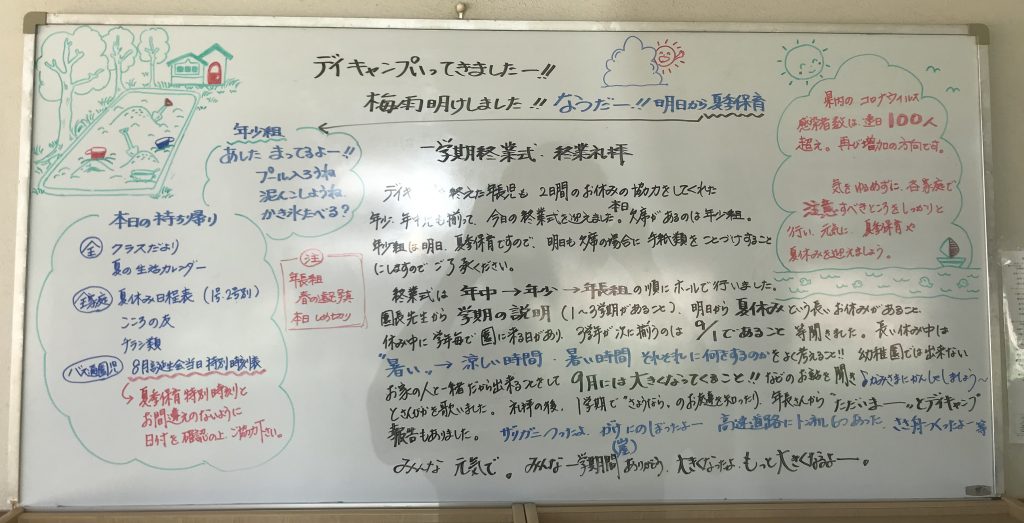 デイキャンプいってきましたー!!
梅雨明けしました!! なつだー!! 明日から夏季保育
年少組
あした まってるよー!!
プール入ろうね
泥んこしようね
かき氷たべる?
本日の持ち帰り
全 クラスだより
夏の生活カレンダー
全家庭 夏休み日程表(1号・2号別)
こころの友
チラシ類
バス通園児 8月誕生会当日特別時刻表
夏季保育特別時刻と
お間違えのないように
日付を確認の上、ご協力下さい。
注
年長組
本日しめ切り
一学期終業式・終業礼拝
終えた年長児も 2日間のお休みの協力をしてくれた
年少、年中児も揃って、今日の終業式を迎えました。本日欠席があるのは年少組。
年少組は明日、夏季保育ですので、明日も欠席の場合に手紙類をことづけすること
にしますのでご了承ください。
終業式は 年中→年少→年長組の順にホールで行いました。
園長先生から 学期の説明(1〜3学期があること)、明日から夏休みという長いお休みがあること、
休み中に学年毎で園に来る日があり、3学年が次に揃うのは9/1であること 等聞きました。長い休み中は
"暑い"→涼しい時間・暑い時間 それぞれに何をするのかをよく考えること!! 幼稚園では出来ない
お家の人と一緒だから出来ることをして 9月には大きくなってくること!! などのお話を聞き
を歌いました。礼拝の後、1学期で"さようなら"のお友達を知ったり、年長さんから"ただいまー"とデイキャンプ
報告もありました。ザリガニつったよ、がけにのぼったよー 高速道路にトンネル6つあった、 つくったよー等
(崖)
みんな 元気で。みんな一学期間ありがとう、大きくなったよ、もっと大きくなるよー。
県内の コロナウィルス
感染者数は、連日100人
超え。再び増加の方向です。
気をゆるめずに、各家庭で
注意すべきところをしっかりと
行い、元気に、夏季保育や
夏休みを迎えましょう。